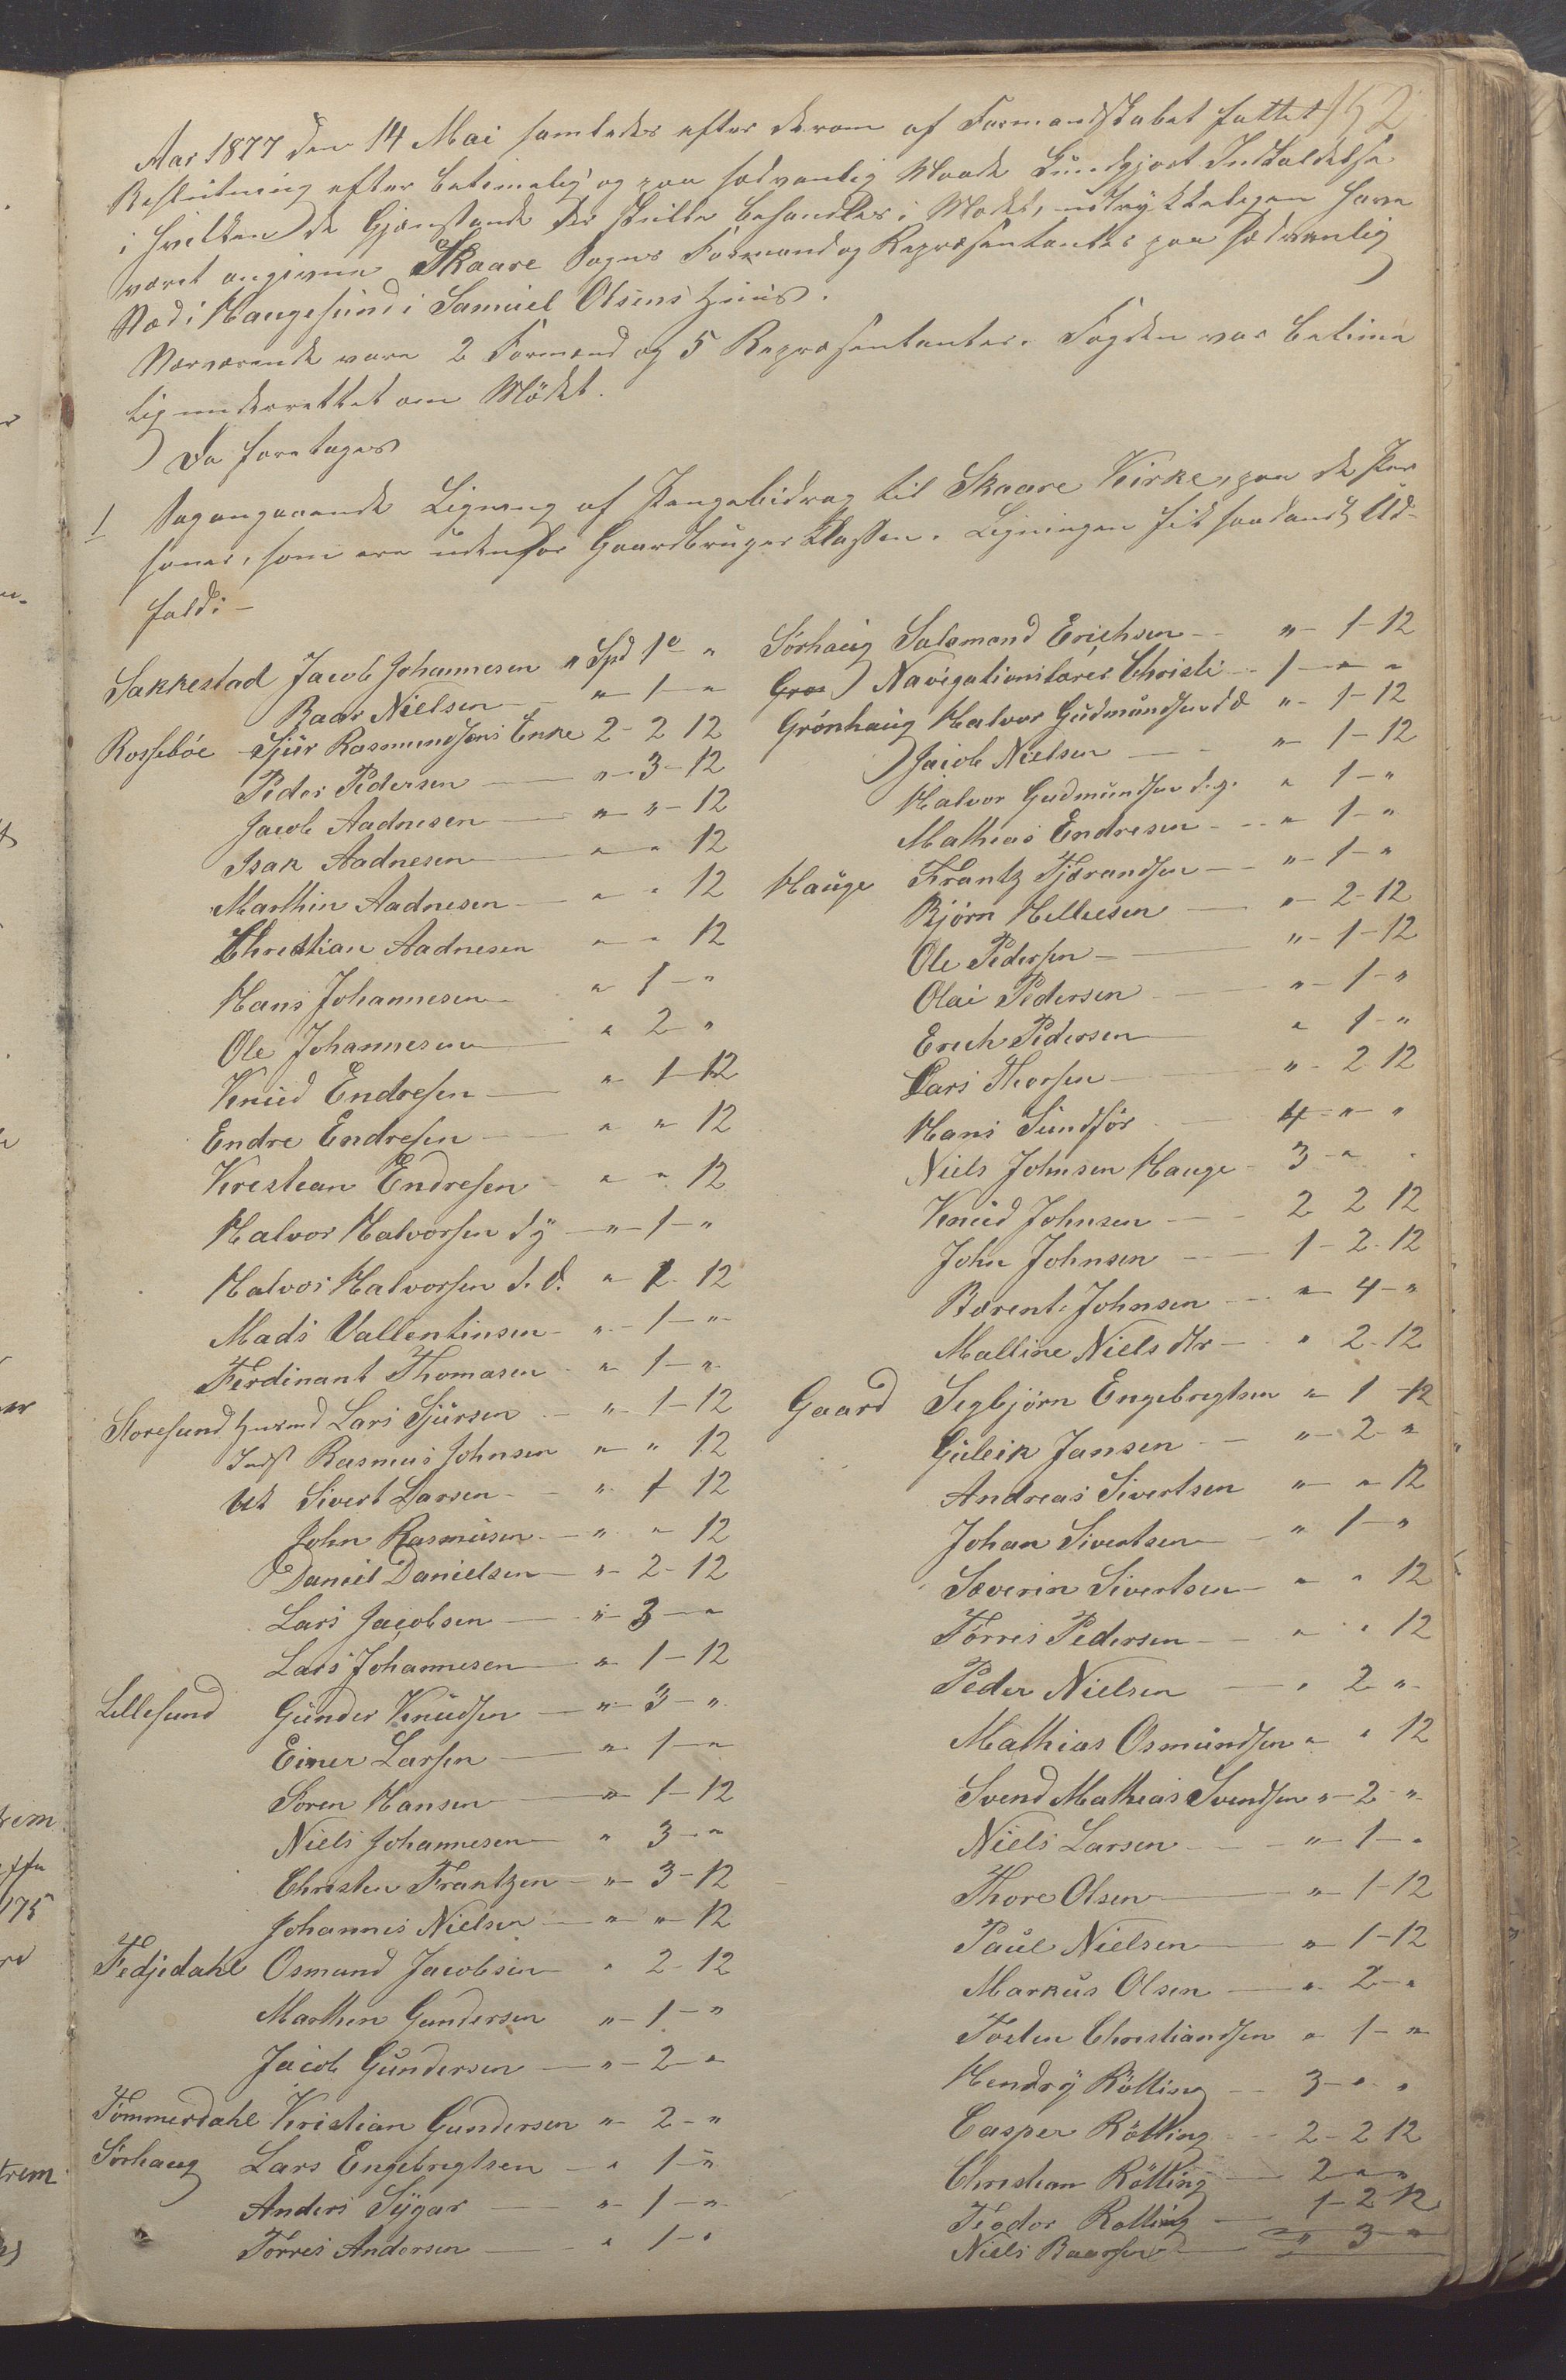 152
Aar 1877 den 14 Mai samledes efter derom af Formandskabet fattet
Beslutning efter betimelig og paa sædvanlig Maade kundgjort Indkaldelse
i hvilken de Gjenstande der skulle behandles i Mødet, udtrykkeligen have
været angivne Skaare Sogns Formænd og Repræsentanter paa sædvanlig
Sted i Haugesund i Samuel Olsens Huus.
Nærværende vare 2 Formænd og 5 Repræsentanter. Fogden var betime
lig underrettet om Mødet.
Da foretages
1 Sag angaaende Ligning af Pengebidrag til Skaare Kirke, paa de Per
soner, som ere udenfor Gaardbruger Klassen. Ligningen fik saadandt Ud-
fald: -
Sakkestad Jacob Johannesen " Spd 1 o "
Baar Nielsen " 1 "
Rossebøe Sjur Rasmundsens Enke 2 - 2 12
Peder Pedersen " 3 - 12
Jacob Aadnesen " " - 12
Isak Aadnesen " " 12
Marthin Aadnesen " " 12
Christian Aadnesen " " 12
Hans Johannesen " 1 - "
Ole Johannesen " 2 "
Knud Endresen " 1 - 12
Endre Endresen " " 12
Krestean Endresen " " 12
Halvor Halvorsen d y " 1 - "
Halvor Halvorsen d. d. " 2 - 12
Mads Vallentinsen " 1 - "
Ferdinant Thomasen " 1 - "
Storesund Husmd Lars Sjursen " 1 - 12
Inds Rasmus Johnsen " " 12
Ut Sivert Larsen " 1 12
John Rasmusen " " 12
Daniel Danielsen " 2 - 12
Lars Jacobsen " 3 - "
Lars Johannesen " 1 - 12
Lillesund Gunder Knudsen " 3 - "
Einer Larsen " 1 - "
Søren Hansen " 1 - 12
Niels Johannesen " 3 - "
Christen Frantzen " 3 - 12
Johannes Nielsen " " 12
Fedjedahl Osmund Jacobsen " 2 - 12
Marthen Gundersen " 1 - "
Jacob Gundersen " 2 - "
Tømmerdahl Kristian Gundersen " 2 - "
Sørhaug Lars Engebregtsen " 1 - "
Anders Sygar " 1 - "
Torres Andersen " 1 - "
Sørhaug Salamond Erichsen " 1 - 12
Navigationslærer Christi 1 - " "
Grønhaug Halvor Gudmundsen d d " 1 - 12
Jacob Nielsen " 1 - 12
Halvor Gudmundsen d. y. " 1 - "
Mathias Endresen " 1 - "
Hauge Frantz Tjerandsen " 1 - "
Bjørn Helliesen " 2 - 12
Ole Pedersen " 1 - 12
Olai Pedersen " 1 - "
Erich Pedersen " 1 - "
Lars Thorsen " 2 12
Hans Sundfør 4 - " "
Niels Johnsen Hauge 3 - " "
Knud Johnsen 2 2 12
John Johnsen 1 - 2 - 12
Berent Johnsen " 4 - "
Malline Niels dtr " 2 - 12
Gaard Segbjørn Engebregtsen " 1 - 12
Guleik Jansen " 2 - "
Andreas Sivertsen " " 12
Johan Sivertsen " 1 - "
Severin Sivertsen " " 12
Torres Pedersen " " 12
Peder Nielsen " 2 "
Mathias Osmundsen " " 12
Svend Mathias Svendsen " 2 - "
Niels Larsen " 1 - "
Thore Olsen " 1 - 12
Paul Nielsen " 1 - 12
Markus Olsen " 2 - "
Tosten Christiandsen " 1 - "
Hendry Røtting 3 - " "
Casper Røtting 2 - 2 12
Christian Røtting 2 " "
Teodor Røtting 1 - 2 12
Niels Baarsen " 3 "